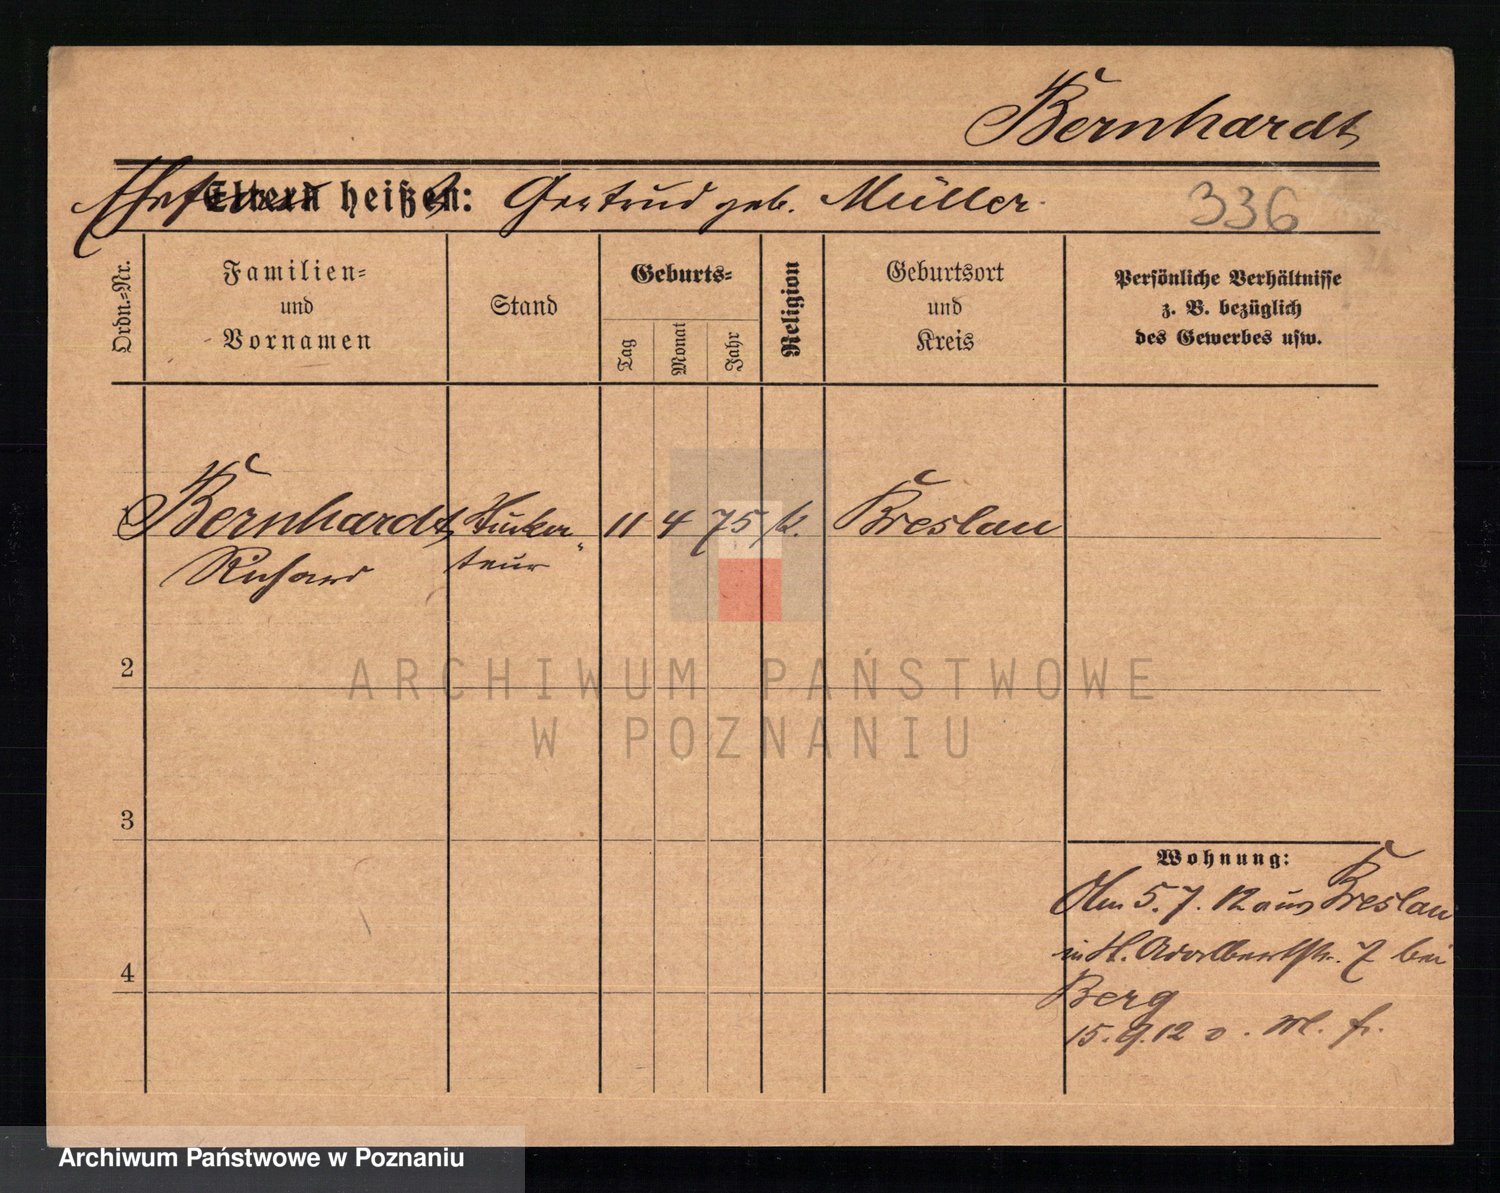 Bernhardt
Ehefrau Eltern heißen: Gertrud geb. Müller
336
Ordn.-Nr.
Familien-
und
Vornamen
Stand
Geburts-
Tag
Monat
Jahr
Religion
Geburtsort
und
Kreis
Persönliche Verhältnisse
z. B. bezüglich
des Gewerbes usw.
1 Bernhardt, 11 4 75 k. Breslau
Richard teur
2
3
4
Wohnung:
5.7.12 aus Breslau
in H. Adalbertstr. 7 bei
Berg
15.9.12
ARCHIWUM PAŃSTWOWE
W POZNANIU
Archiwum Państwowe w Poznaniu